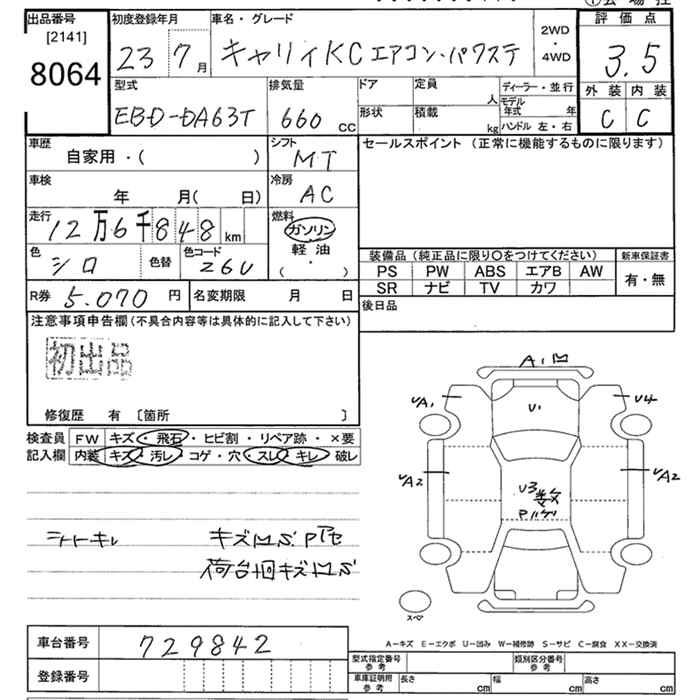 出品番号 初度登録年月 車名・グレード 2WD 評価点
[2141] 23 7月 キャリィKC エアコン・パワステ ・ 3.5
8064 4WD 外装 内装
型式 排気量 ドア 定員 人 ディーラー・並行 C C
EBD-DA63T 660 CC 形状 積載 kg モデル年式 年
ハンドル 左・右
車歴 シフト セールスポイント (正常に機能するものに限ります)
自家用・( ) MT
車検 冷房
年 月( 日) AC
走行 燃料
12万6千848 km ガソリン
軽油
色 色替 色コード ( ・ )
シロ Z6U
装備品 (純正品に限り○をつけてください) 新車保証書
PS PW ABS エアB AW 有・無
SR ナビ TV カワ
R券 5.070 円 名変期限 月 日
後日品
注意事項申告欄 (不具合内容等は具体的に記入して下さい)
初出品
修復歴 有 〔箇所 〕
検査員 FW キズ・飛石・ヒビ割・リペア跡・×要
記入欄 内装 キズ・汚レ・コゲ・穴・スレ・キレ・破レ
A1
UA1
U1
U4
UA2
UA2
U3
数
シートキレ
スペア
車台番号 729842
登録番号
A－キズ E－エクボ U－凹み W－補修跡 S－サビ C－腐食 XX－交換済
型式指定番号 参考 類別区分番号 参考
車庫証明用 参考 長さ cm 幅 cm 高さ cm